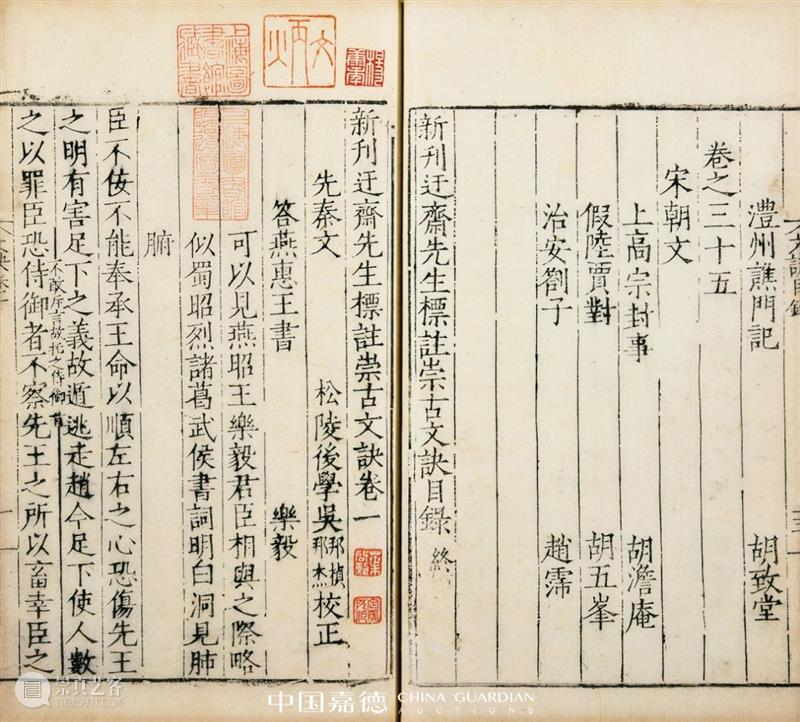 澧州譙門記 胡致堂
卷之三十五
宋朝文
上高宗封事 胡澹庵
假陸賈對 胡五峯
治安劄子 趙霈
新刊迂齋先生標註崇古文訣目錄 終
新刊迂齋先生標註崇古文訣卷一
先秦文 松陵後學吳邦楨邦杰校正
答燕惠王書 樂毅
可以見燕昭王樂毅君臣相與之際略
似蜀昭烈諸葛武侯書詞明白洞見肺
腑
臣不佞不能奉承王命以順左右之心恐傷先王
之明有害足下之義故遁逃走趙今足下使人數
不敢斥言故托之侍御者
之以罪臣恐侍御者不察先王之所以畜幸臣之
上海圖書館藏
文炳
中国嘉德 CHINA GUARDIAN
AUCTIONS
崇真艺客